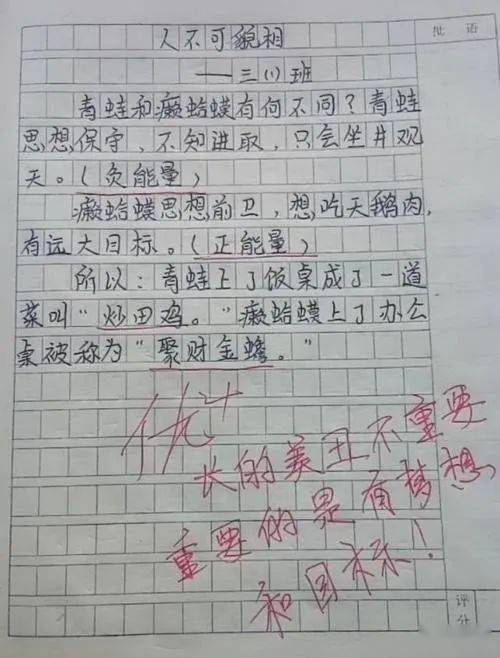 人不可貌相
批语
——三(1)班
青蛙和癞蛤蟆有何不同？青蛙
思想保守，不知进取，只会坐井观
天。(负能量)
癞蛤蟆思想前卫，想吃天鹅肉，
有远大目标。(正能量)
所以：青蛙上了饭桌成了一道
菜叫"炒田鸡。"癞蛤蟆上了办公
桌被称为"聚财金蟾。"
优+
长的美丑不重要
重要的是有梦想
和目标！
评分